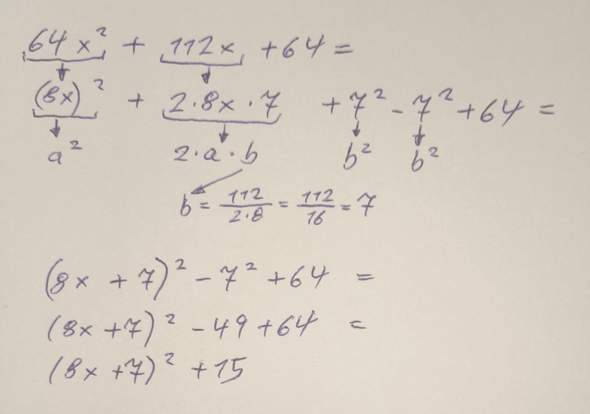 64x² + 112x + 64 =
(8x)² + 2·8x·7 + 7² - 7² + 64 =
a² 2·a·b b² b²
b = 112/2·8 = 112/16 = 7
(8x + 7)² - 7² + 64 =
(8x + 7)² - 49 + 64 =
(8x + 7)² + 15